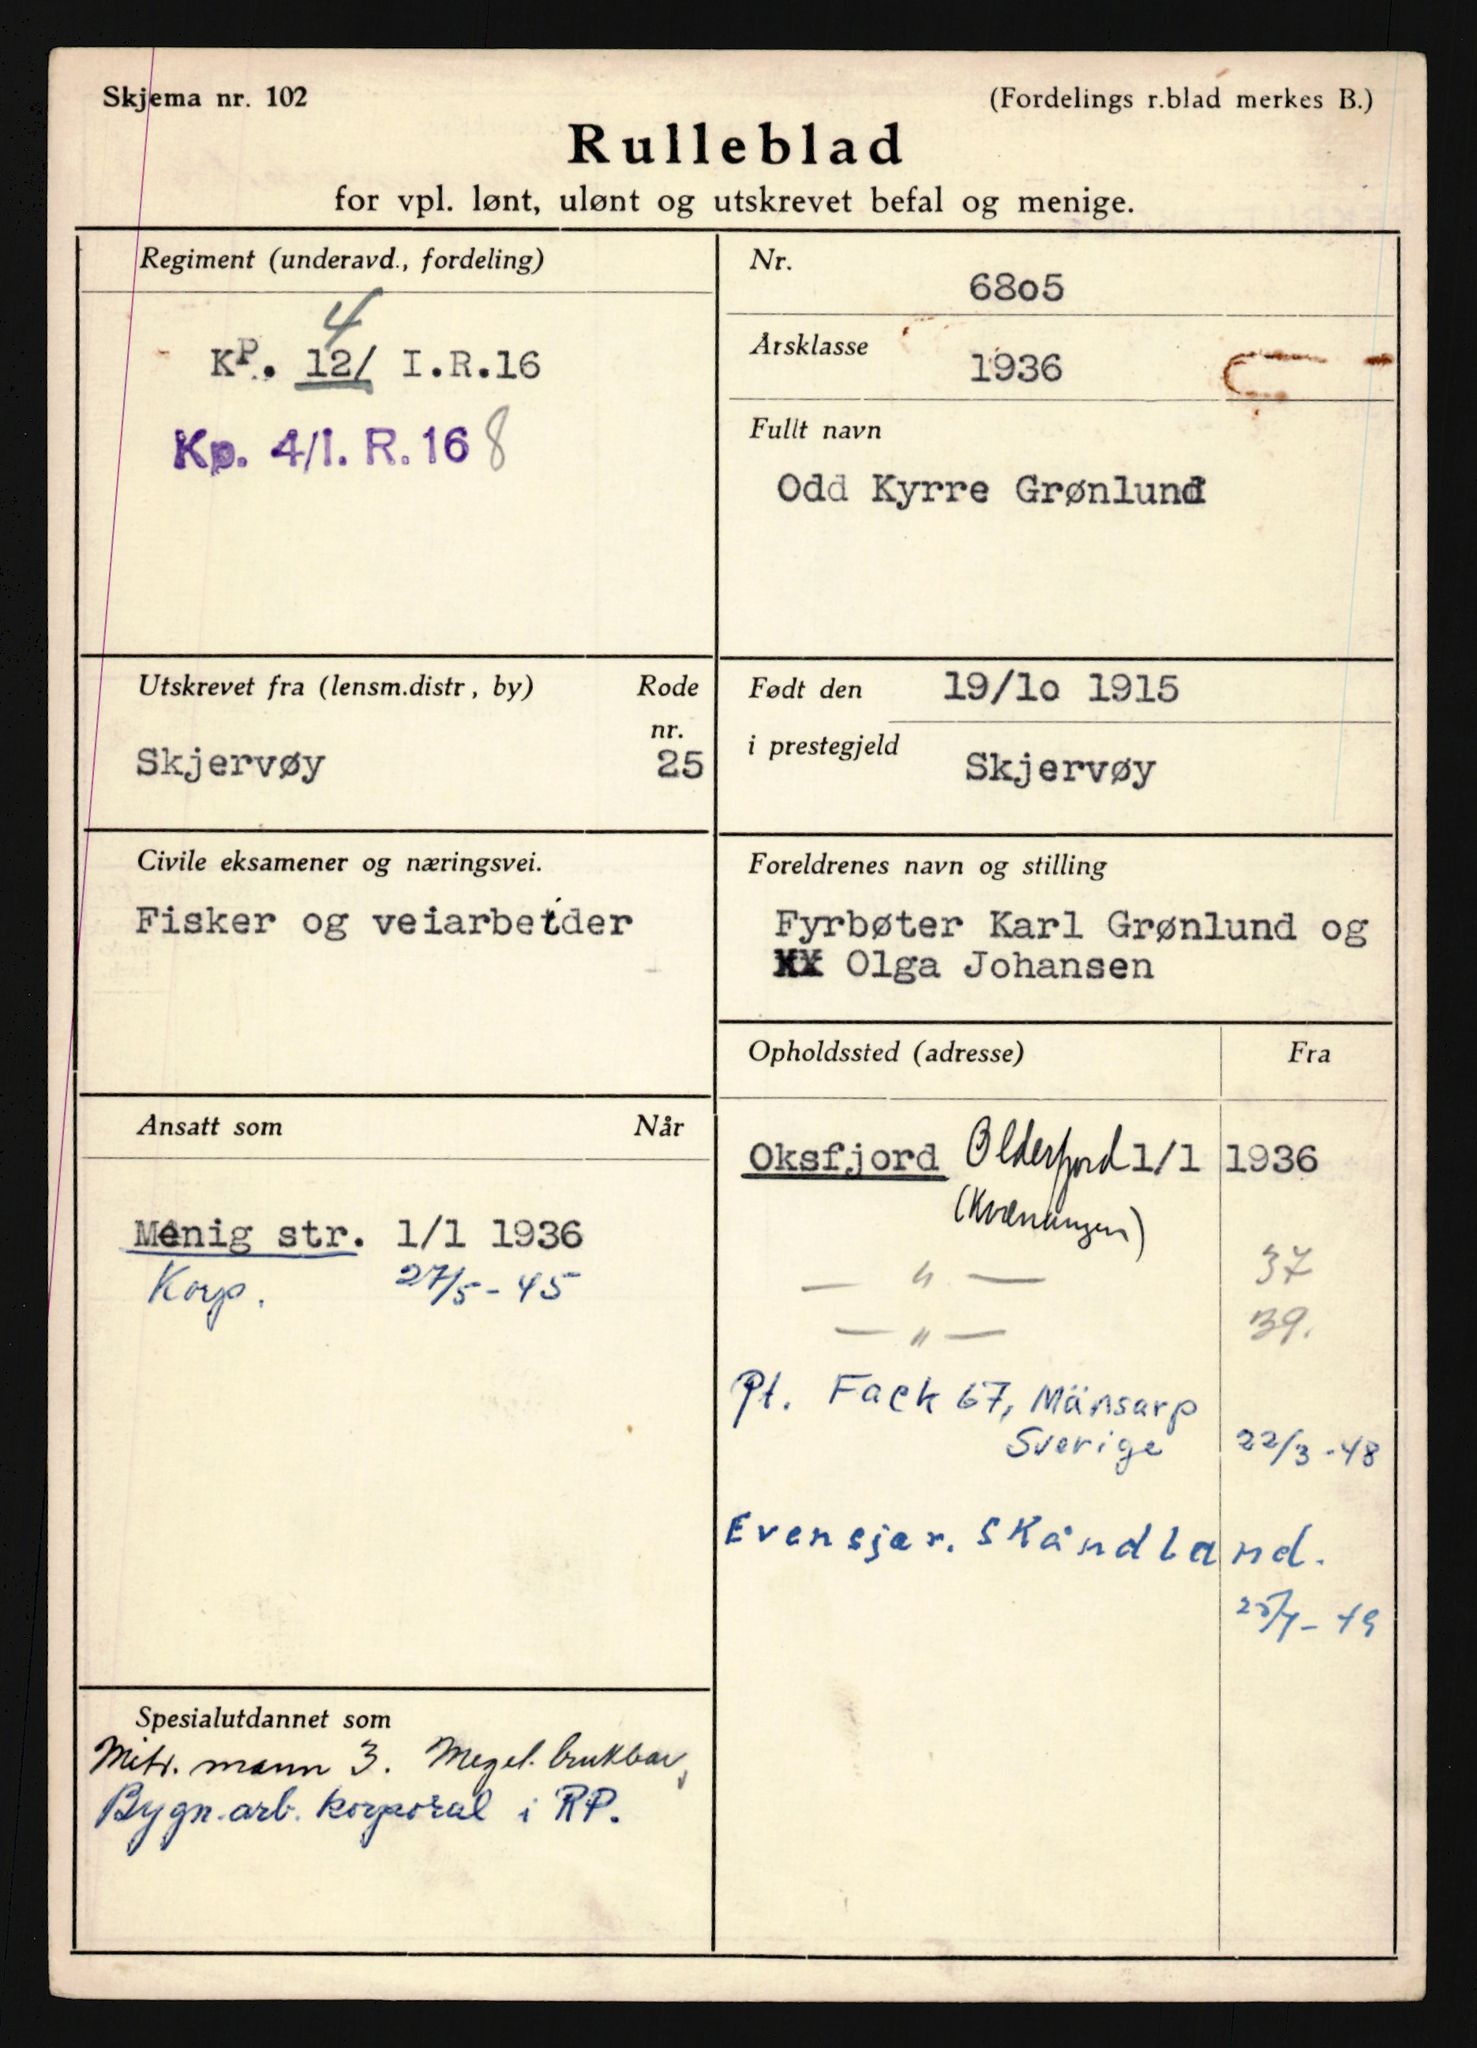 Skjema nr. 102
(Fordelings r.blad merkes B.)
Rulleblad
for vpl. lønt, ulønt og utskrevet befal og menige.
Regiment (underavd., fordeling)
4
Kp. 12/ I.R.16
Kp. 4/I. R. 16 8
Nr.
6805
Årsklasse
1936
Fullt navn
Odd Kyrre Grønlund
Utskrevet fra (lensm.distr, by)
Rode
nr.
Skjervøy
25
Født den
19/10 1915
i prestegjeld
Skjervøy
Civile eksamener og næringsvei.
Fisker og veiarbeider
Foreldrenes navn og stilling
Fyrbøter Karl Grønlund og
Olga Johansen
Ansatt som
Når
Menig str. 1/1 1936
Korp. 27/5-45
Opholdssted (adresse)
Fra
Oksfjord Olderfjord 1/1 1936
(Kvænangen)
— " — 37
— " — 39.
Pt. Fack 67, Mänsarp
Sverige 22/3-48
Evensjær. Skåndland.
-49
Spesialutdannet som
Mitr. mann 3. Meget brukbar,
Bygn.arb. korporal i RP.